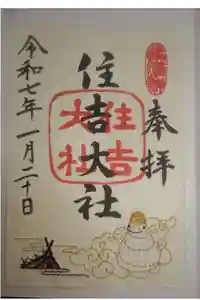 奉拝
住吉大社
住吉大社
令和七年一月二十日